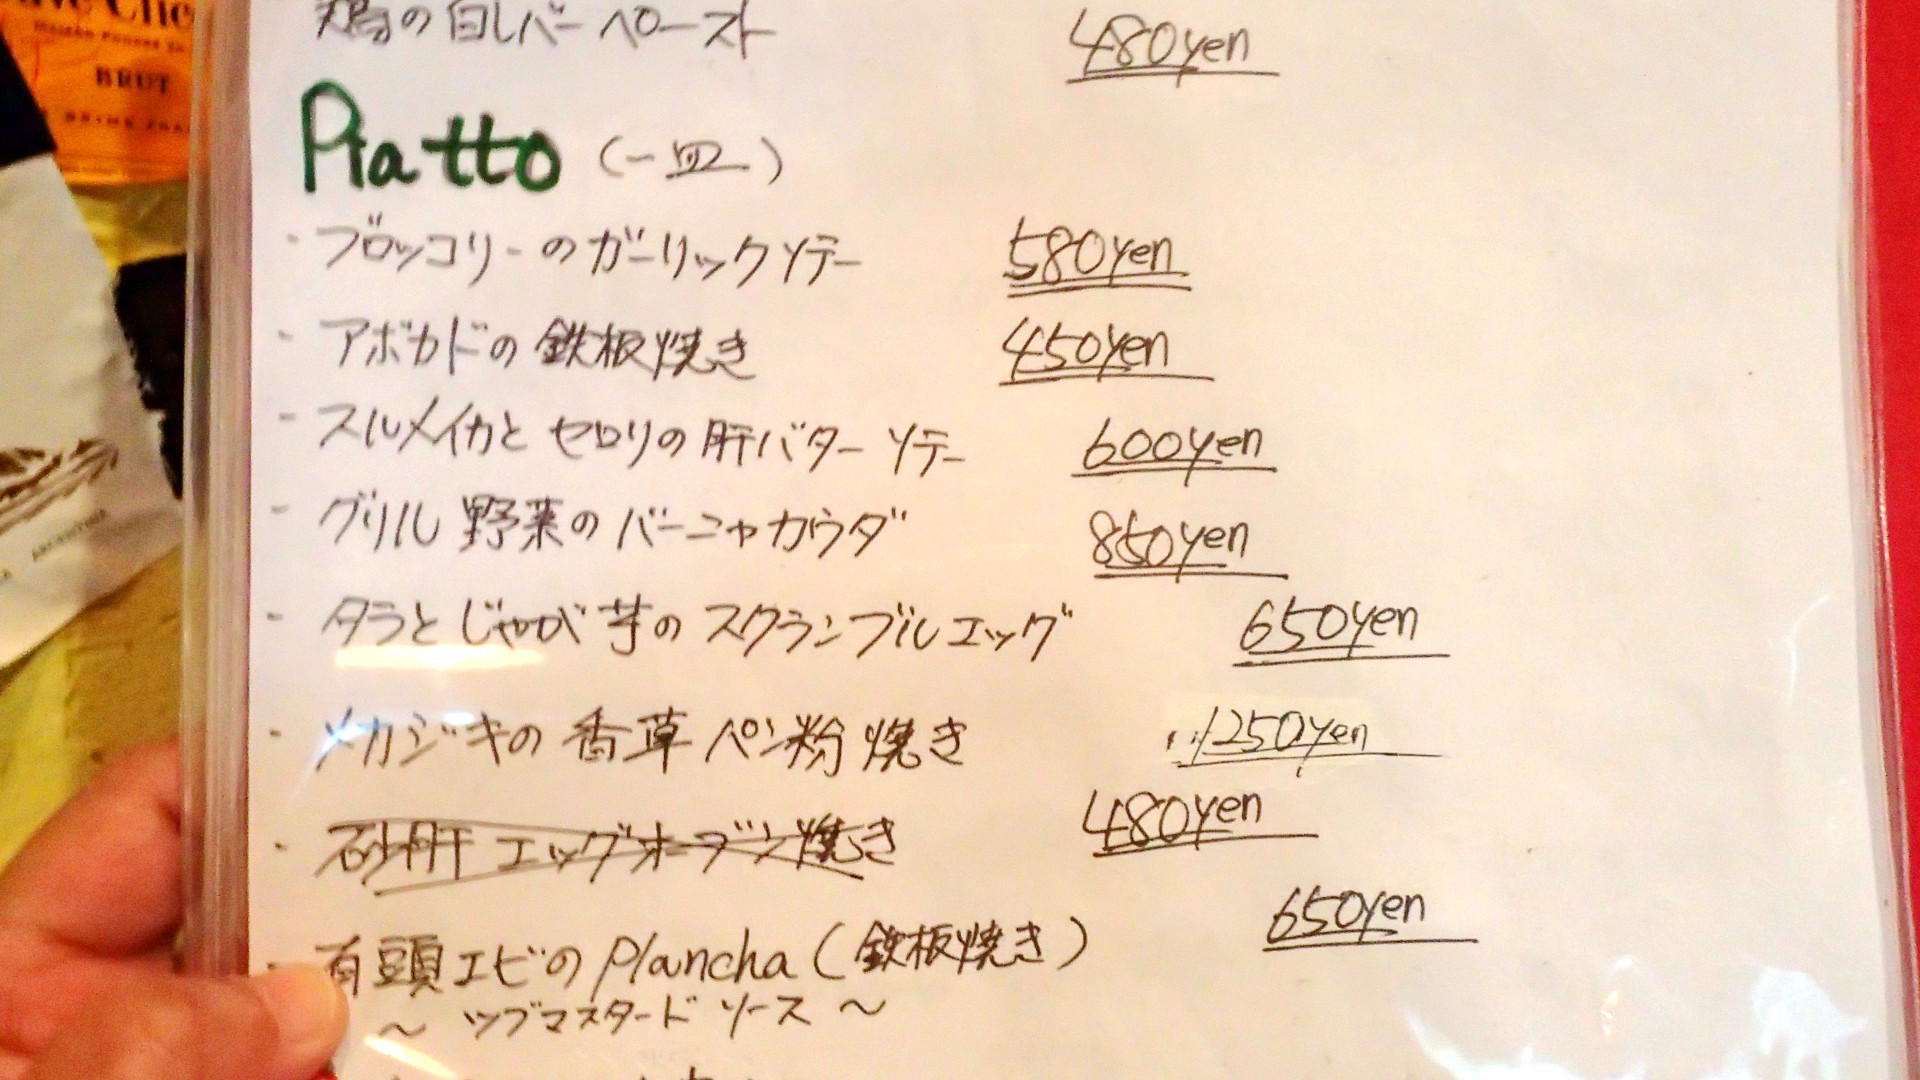 BRUT
ARGENTINA
鶏の白レバーペースト 480yen
Piatto (一皿)
・ブロッコリーのガーリックソテー 580yen
・アボカドの鉄板焼き 450yen
・スルメイカとセロリの肝バターソテー 600yen
・グリル野菜のバーニャカウダ 850yen
・タラとじゃが芋のスクランブルエッグ 650yen
・メカジキの香草パン粉焼き 1250yen
・砂肝エッグオーブン焼き 480yen
・有頭エビのPlancha(鉄板焼き) 650yen
～ツブマスタードソース～